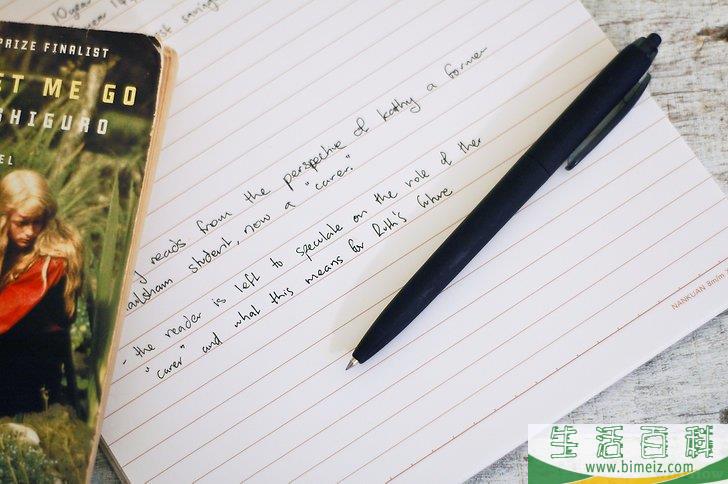 PRIZE FINALIST
ET ME GO
SHIGURO
EL
10 year
reads from the perspective of Kathy a former
ailsham student, now a "carer."
- the reader is left to speculate on the role of ther
"carer" and what this means for Ruth's future
NANKUAN 8m/m
生活百科
www.bimeiz.com